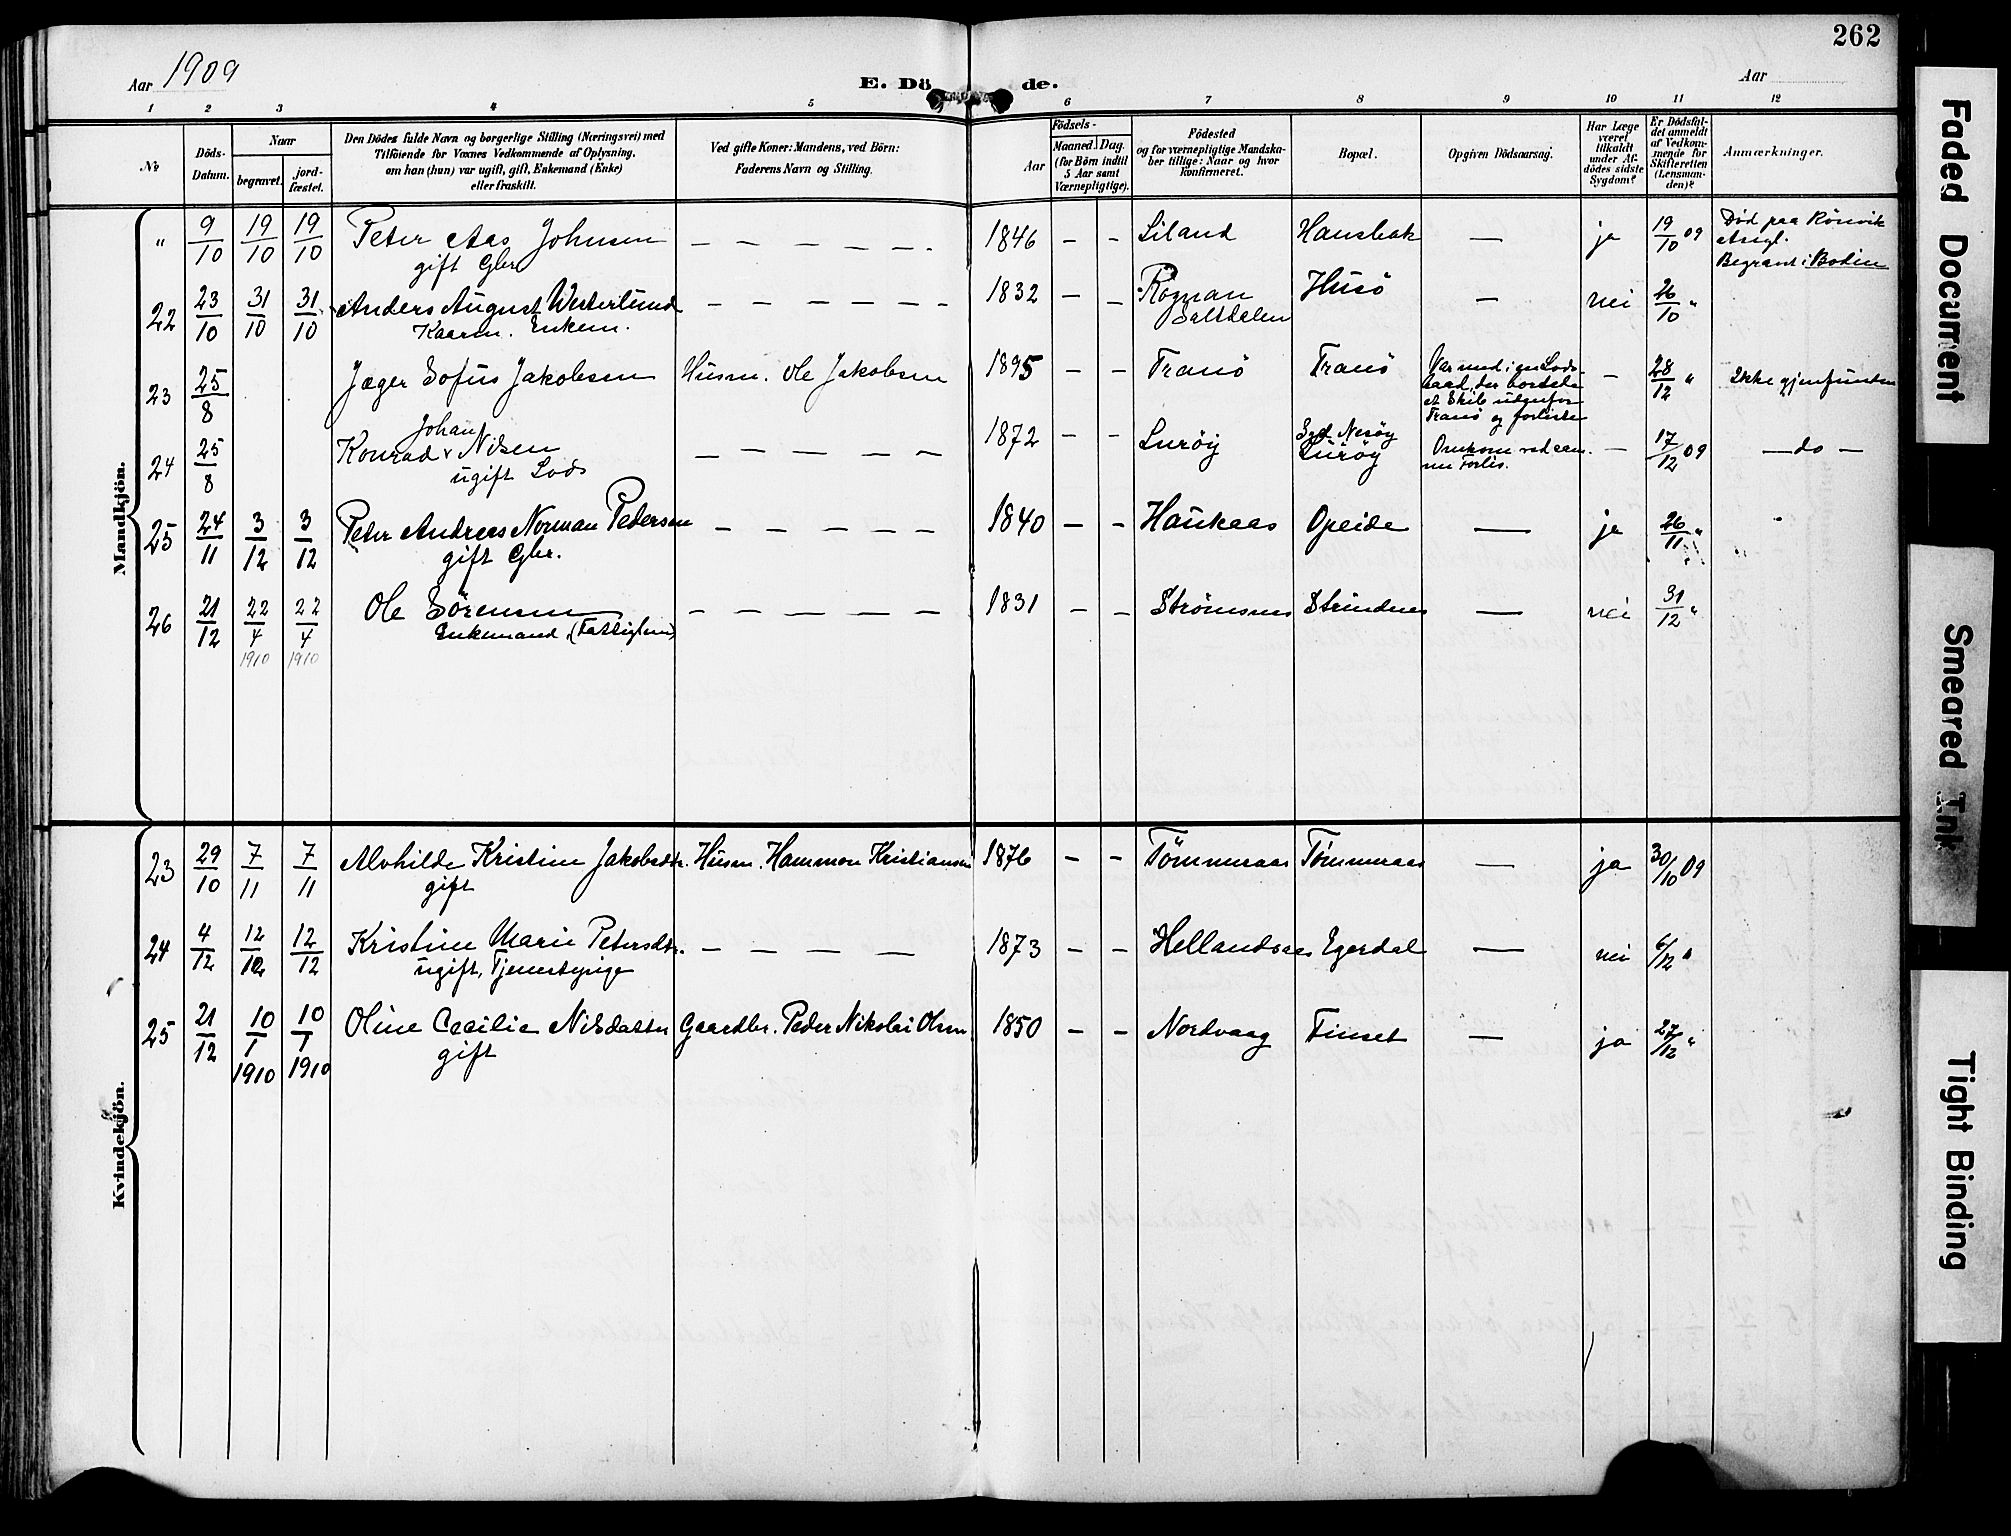 262
Aar 1909
E. Dö de.
Aar
1 2 3 4 5 6 7 8 9 10 11 12
No
Döds-
Datum.
Naar
begravet.
jord-
fæstet.
Den Dödes fulde Navn og borgerlige Stilling (Næringsvei) med
Tilföiende for Voxnes Vedkommende af Oplysning,
om han (hun) var ugift, gift, Enkemand (Enke)
eller fraskilt.
Ved gifte Koner: Mandens, ved Börn:
Faderens Navn og Stilling.
Födsels-
Aar
Maaned.
Dag.
(for Börn indtil
5 Aar samt
Værnepligtige).
Födested
og for værnepligtige Mandska-
ber tillige: Naar og hvor
konfirmeret.
Bopæl.
Opgiven Dödsaarsag.
Har Læge
været
tilkaldt
under Af-
dödes sidste
Sygdom?
Er Dödsfal-
det anmeldt
af Vedkom-
mende for
Skifteretten
(Lensman-
den)?
Anmærkninger.
Mandkjön.
" 9/10 19/10 19/10 Peter Aas Johnsen — — — — — 1846 — — Liland Hansbak — ja 19/10 09 Död paa Rönvik
Asyl.
gift Gbr Begravet i Bodin
22 23/10 31/10 31/10 Anders August Westerlund — — — — — — 1832 — — Rognan Husö — nei 26/10 "
Kaarm. Enkem. Saltdalen
23 25/8 Jæger Sofus Jakobsen Husm. Ole Jakobsen 1895 — — Tranö Tranö Var med i en Lods-
baad, der bordede
et Skib udenfor
Tranö og forliste — 28/12 " Ikke gjenfunden
24 25/8 Johan
Konrad Nilsen — — — — — 1872 — — Luröy Nesöy
Luröy Omkom ved sam-
me Forlis. — 17/12 09 — do —
ugift Lods
25 24/11 3/12 3/12 Peter Andreas Norman Pedersen — — — — — 1840 — — Haukaas Opeide — ja 26/11 "
gift Gbr.
26 21/12 22/4 22/4 Ole Sörensen — — — — — — 1831 — — Strömsnes Strindnes — nei 31/12 "
1910 1910 Enkemand, (Fattiglem)
Kvindekjön.
23 29/10 7/11 7/11 Alvhilde Kristine Jakobsdtr. Husm. Hammon Kristiansen 1876 — — Tömmeraas Tömmeraas — ja 30/10 09
gift
24 4/12 12/12 12/12 Kristine Marie Petersdtr. — — — — 1873 — — Hellandsaa Egerdal — nei 6/12 "
ugift, Tjenestepige
25 21/12 10/1 10/1 Oline Cecilie Nilsdatter Gaardbr. Peder Nikolai Olsen 1850 — — Nordvaag Finset — ja 27/12 "
1910 1910 gift
Faded Document
Smeared Ink
Tight Binding